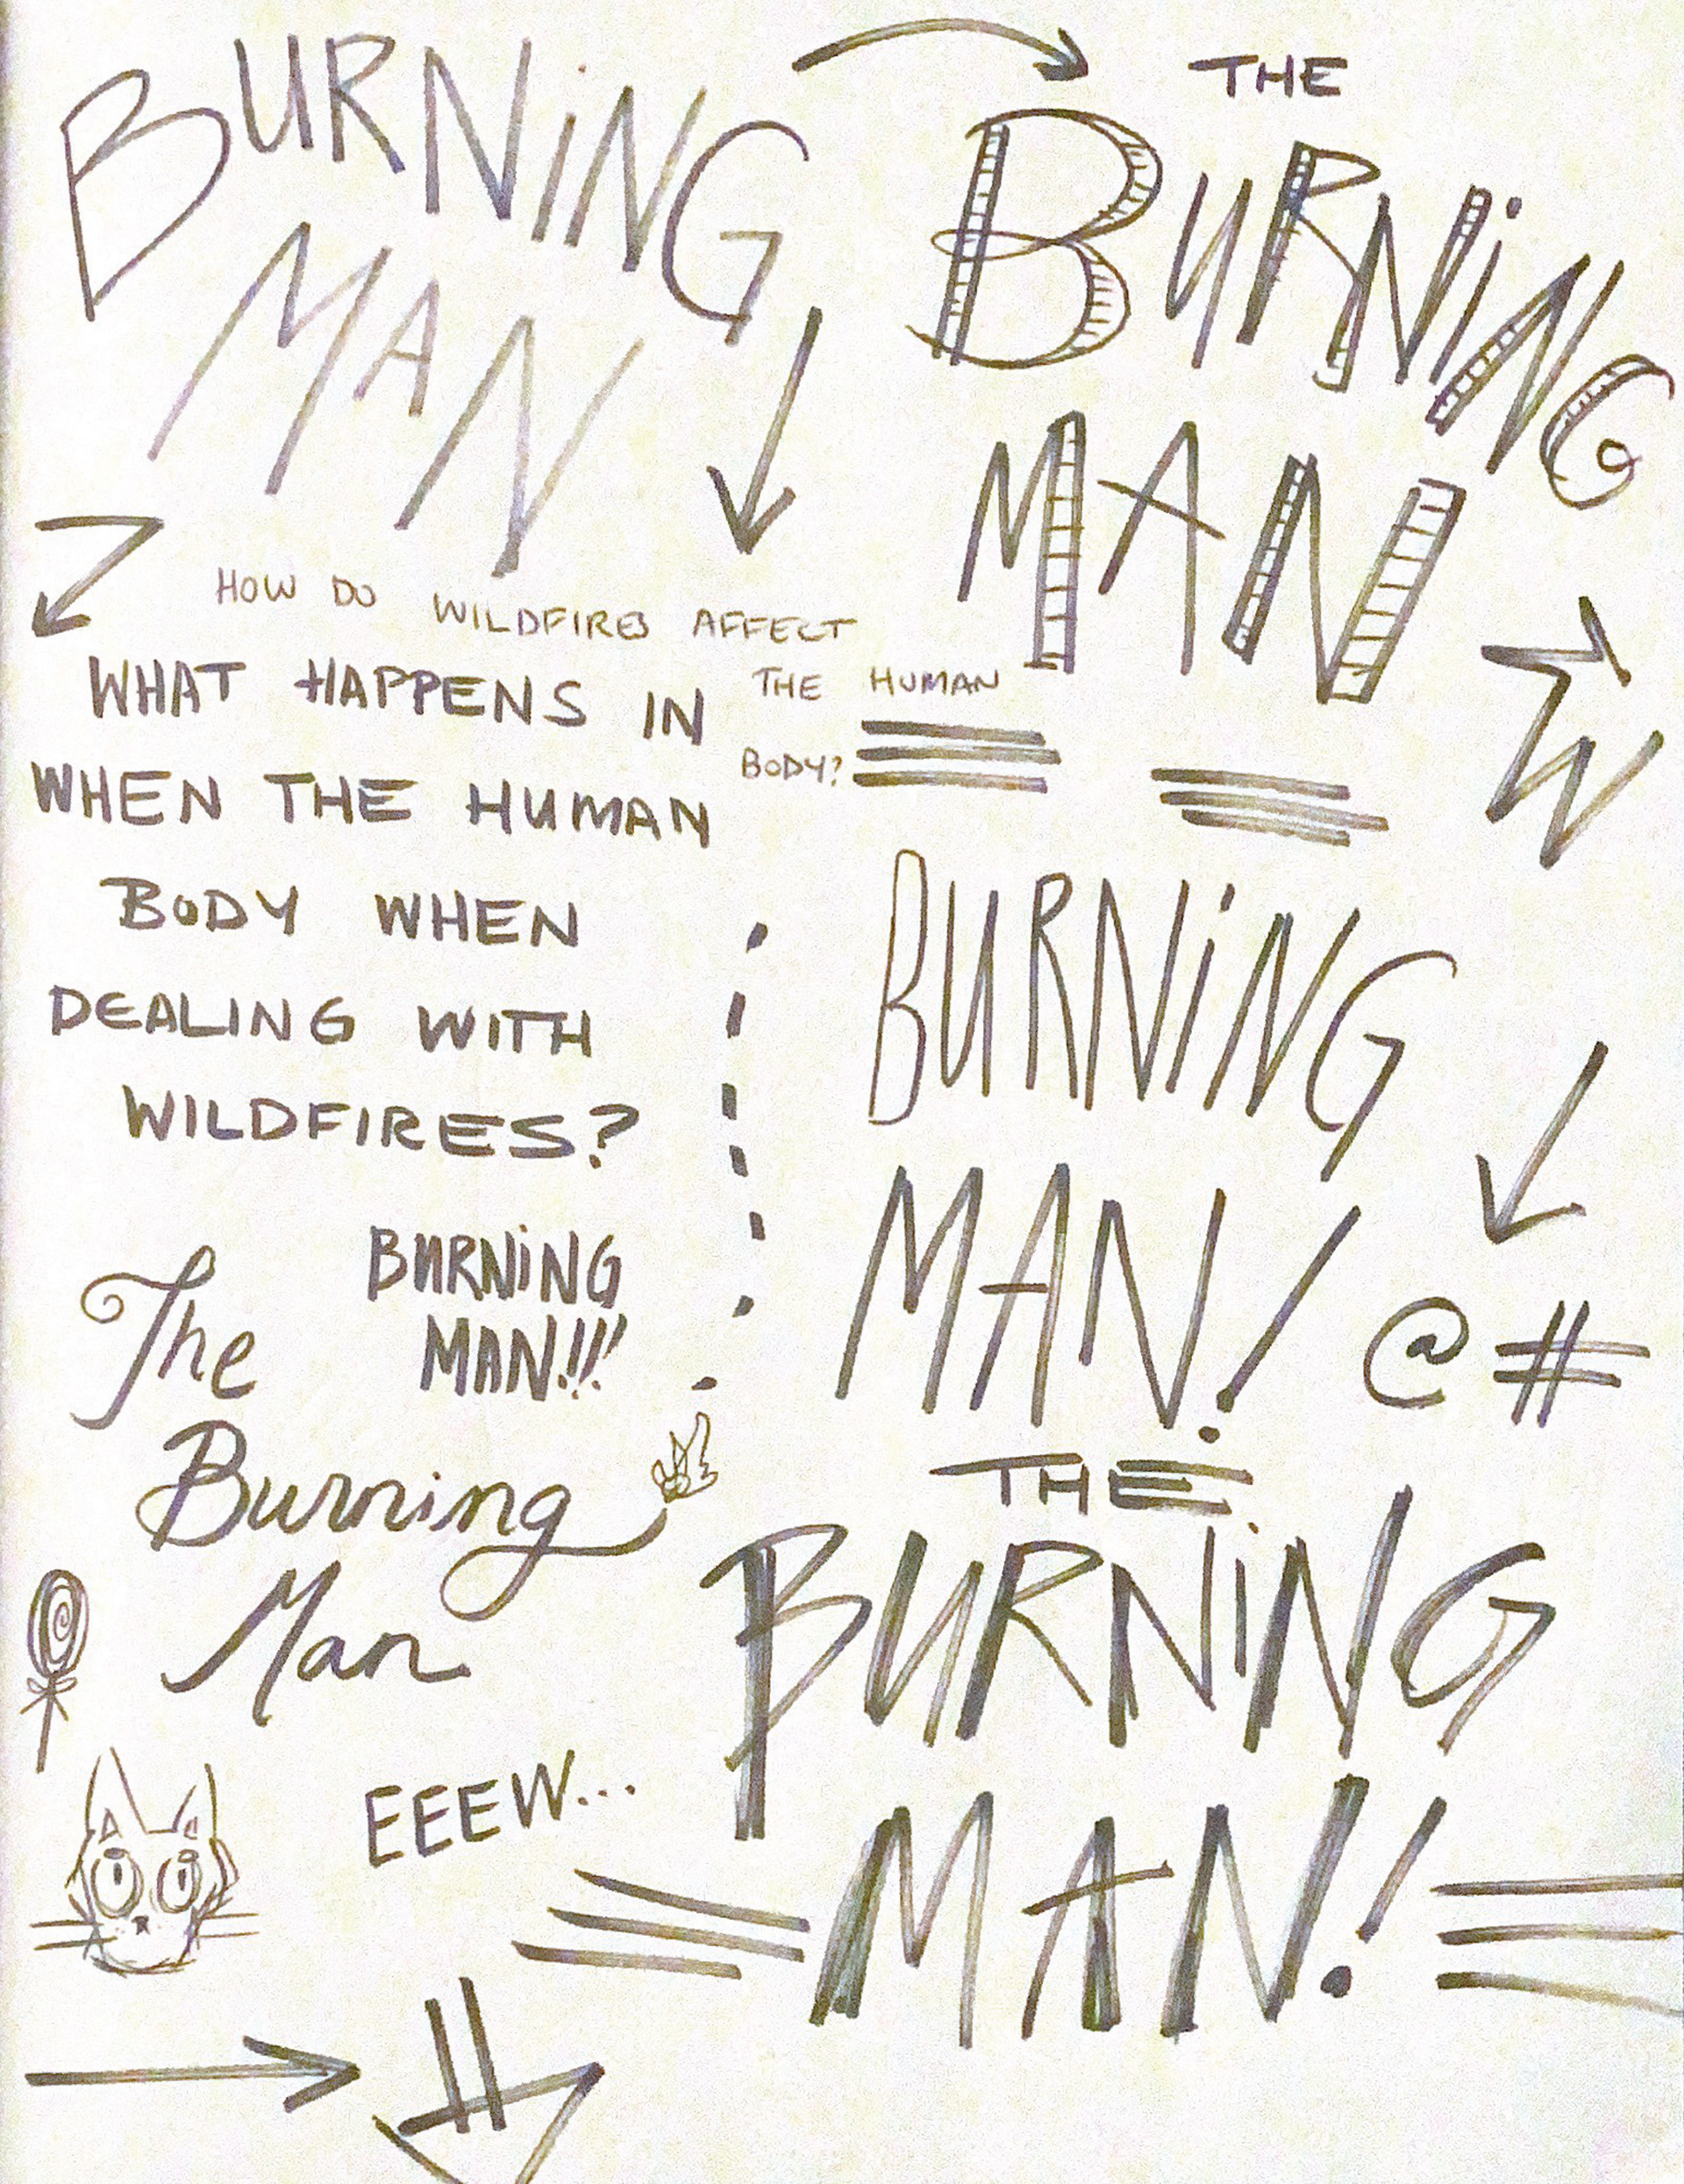 BURNiNG
MAN
THE
BURNiNG
MAN
HOW DO WILDFIRES AFFECT
THE HUMAN
BODY?
WHAT HAPPENS IN
WHEN THE HUMAN
BODY WHEN
DEALING WITH
WILDFIRES?
BURNiNG
MAN!
@ #
The
BURNiNG
MAN!!!
Burning
Man
THE
BURNiNG
MAN!
EEEW...